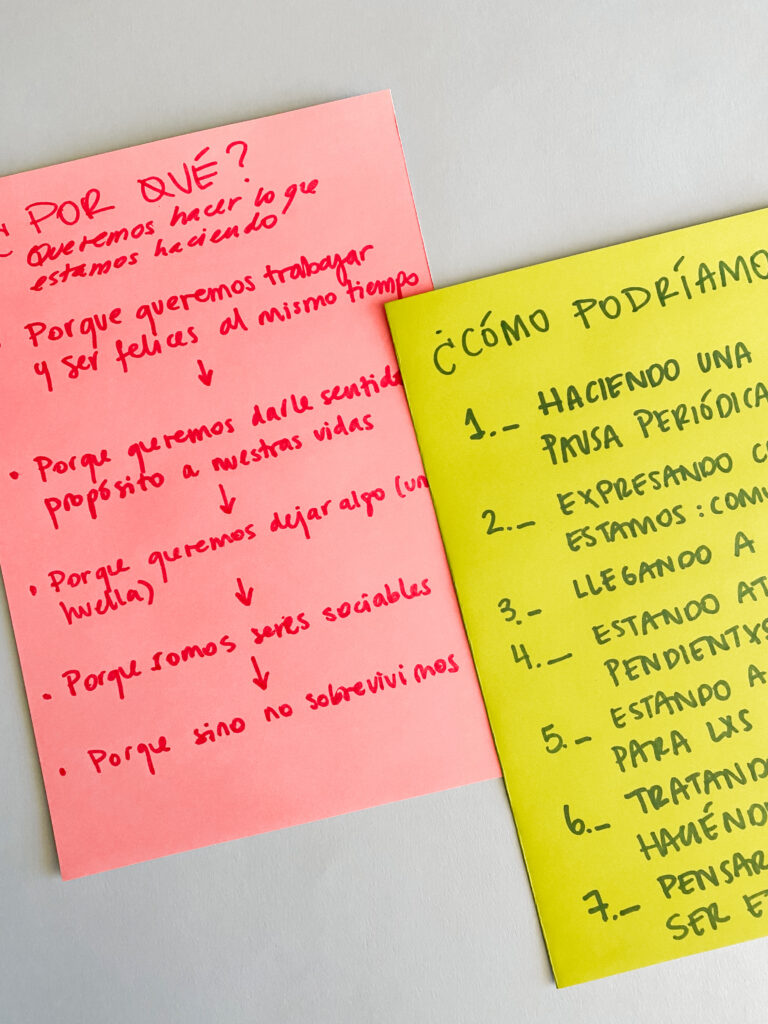 ¿POR QUÉ?
Queremos hacer lo que
estamos haciendo
• Porque queremos trabajar
y ser felices al mismo tiempo
↓
• Porque queremos darle sentido
propósito a nuestras vidas
↓
• Porque queremos dejar algo (un
huella)
↓
• Porque somos seres sociables
↓
• Porque sino no sobrevivimos
¿CÓMO PODRÍAMO
1.- HACIENDO UNA
PAUSA PERIÓDICA
2.- EXPRESANDO C
ESTAMOS: COMU
3.- LLEGANDO A
4.- ESTANDO AT
PENDIENTXS
5.- ESTANDO A
PARA LXS
6.- TRATANDO
HACIÉNDO
7.- PENSAR
SER E